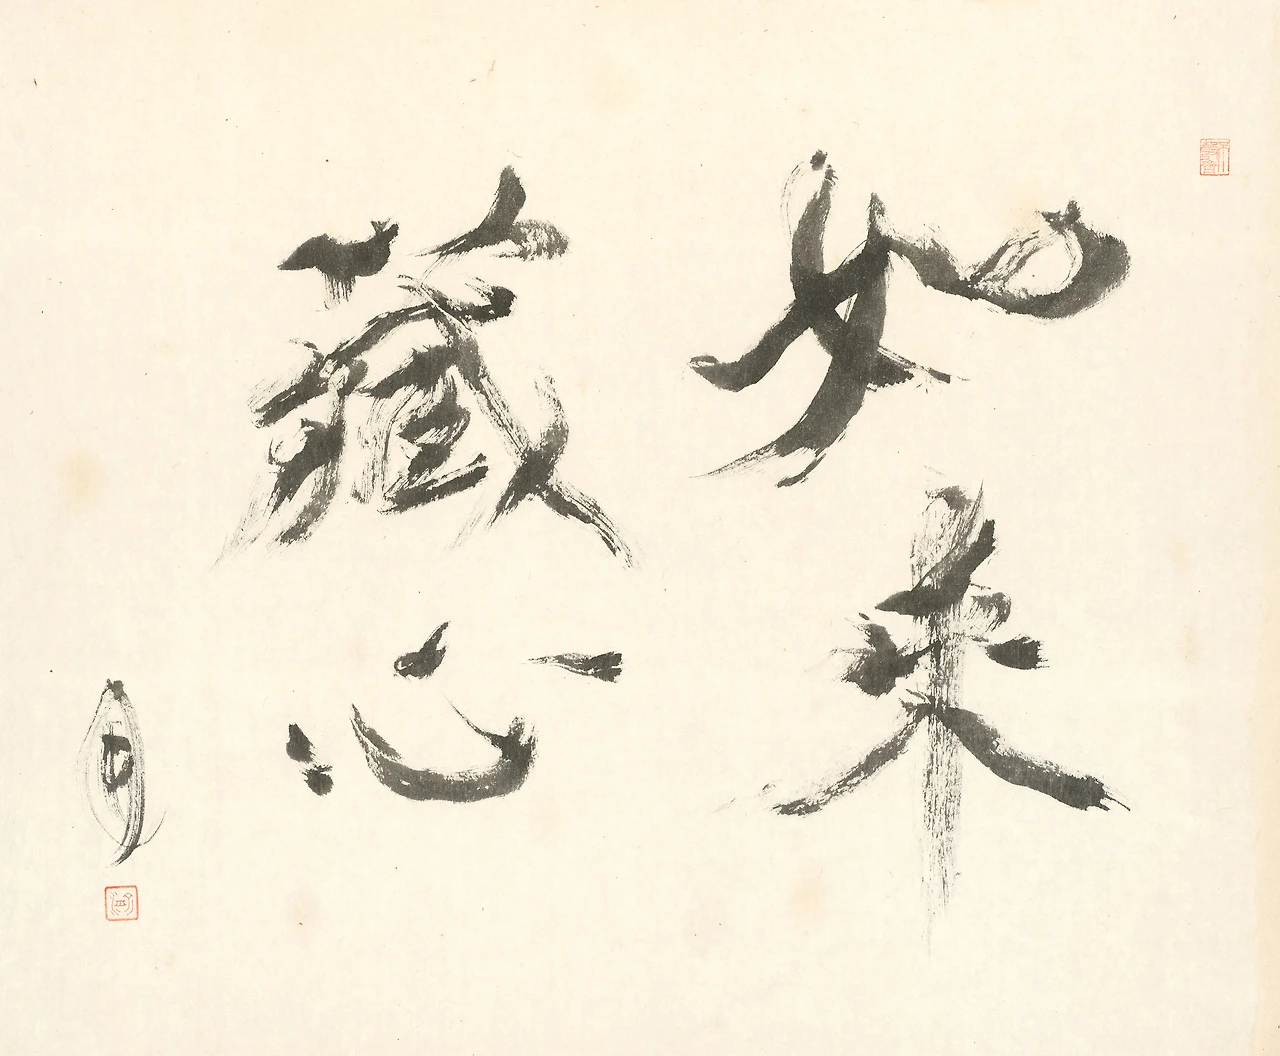 如来
藏心